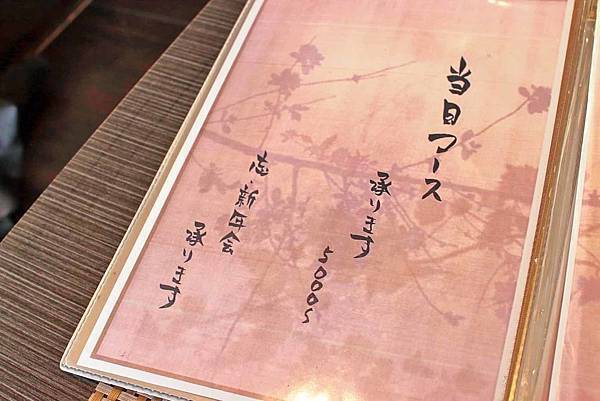 当日コース
承ります
5000〜
忘・新年会
承ります